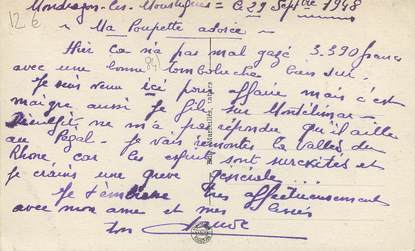 12 €
Mondragon-les-Moustiques = le 29 Septbre 1948
~ Ma Poupette adorée ~
Hier ca n'a pas mal gazé 3.390 francs
avec une bonne tomboluche bien sur.
Je suis venu ici pour affaire mais c'est
maigre aussi je file sur Montélimar –
ne m'a pas répondu qu'il aille
au Pégal – Je vais remonter la vallée du
Rhone car les esprits sont surexités et
je crains une grève générale ...
Je t'embrasse très affectueusement
avec mon ame et mes levres
ton